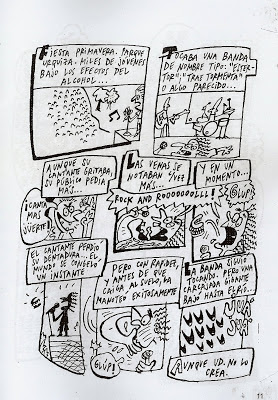 FIESTA PRIMAVERA. PARQUE
URQUIZA. MILES DE JÓVENES
BAJO LOS EFECTOS DEL
ALCOHOL...
TOCABA UNA BANDA
DE NOMBRE TIPO: "ESTER-
TOR", "TRAS TORMENTA"
O ALGO PARECIDO...
AUNQUE SU
CANTANTE GRITABA,
SU PÚBLICO PEDÍA
MAS...
¡CANTA
MAS
FUERTE!
LAS VENAS SE
NOTABAN
MAS...
ROCK AND ROOOOOOLLL!
Y EN UN
MOMENTO...
¡GLUP!
EL CANTANTE PERDIÓ
SU DENTADURA... EL
MUNDO SE CONGELÓ
UN INSTANTE
PERO CON RAPIDEZ,
Y ANTES DE QUE
CAIGA AL SUELO, LA
MANOTEÓ EXITOSAMENTE
¡GLÚP!
LA BANDA SIGUIÓ
TOCANDO. PERO UNA
CARCAJADA GIGANTE
BAJÓ HASTA EL RÍO.
JUA
JUA
AUNQUE UD. NO LO
CREA.
11